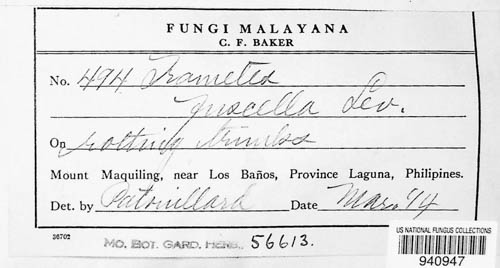 FUNGI MALAYANA
C. F. BAKER
No. 494 Trametes
fuscella Lev.
On rotting trunks
Mount Maquiling, near Los Baños, Province Laguna, Philipines.
Det. by Patouillard Date Mar. '14
36702
MO. BOT. GARD. HERB. 56613.
US NATIONAL FUNGUS COLLECTIONS
940947